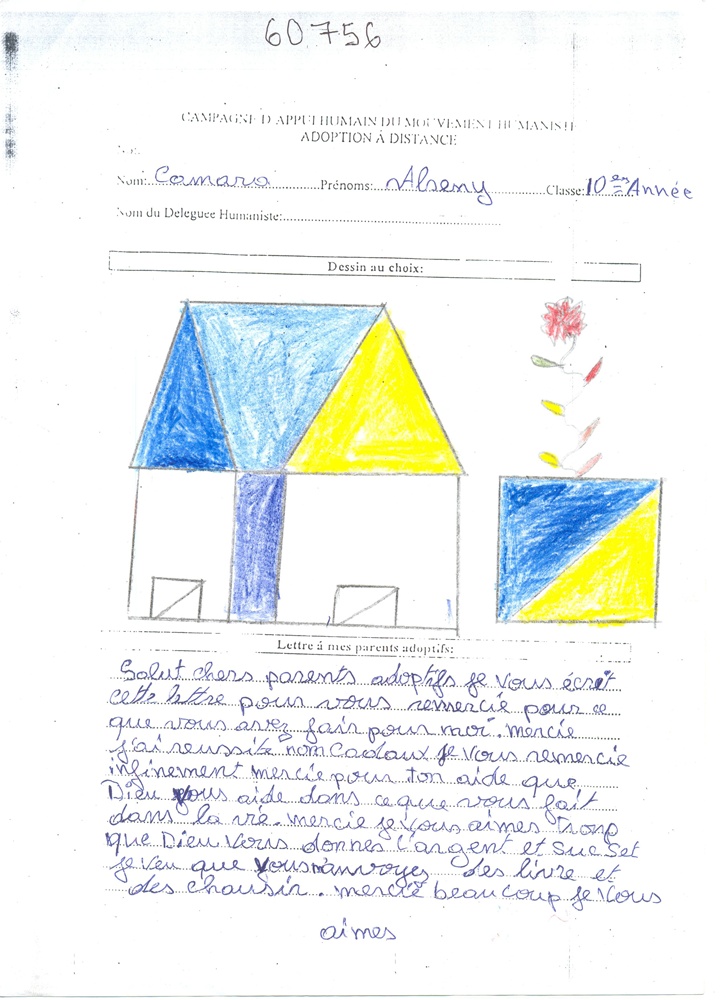 60756
CAMPAGNE D'APPUI HUMAIN DU MOUVEMENT HUMANISTE
ADOPTION À DISTANCE
Nom: Camara Prénoms: Alseny Classe: 10 Année
Nom du Deleguee Humaniste:
Dessin au choix:
Lettre á mes parents adoptifs:
Salut chers parents adoptifs je vous écrit
cette lettre pour vous remercie pour ce
que vous avez fair pour moi. mercie
j'ai reussite nom Cadaux je vous remercie
infinement mercie pour ton aide que
Dieu vous aide dans ce que vous fait
dans la vie. mercie je vous aimes Tromp
que Dieu vous donnes l'argent et Suc Set
je veu que vous m'anvoyes des livre et
des chausir. mercie beaucoup je vous
aimes